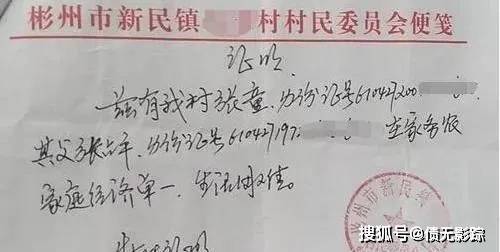 彬州市新民镇村村民委员会便笺
证明
兹有我村张童,身份证号610427200
其父张占平,身份证号610427197 在家务农
家庭经济单一,生活困难。
特此证明
彬州市新民镇
搜狐号@债无影踪